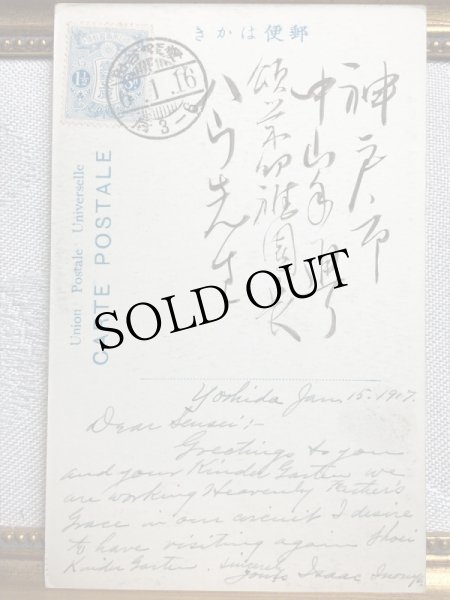 郵便はかき
1½
1.16
神戸市
中山手通り
頌栄幼稚園長
ハウ先生
Union Postale Universelle
CARTE POSTALE
SOLD OUT
Yoshida Jan. 15. 1917.
Dear Sensei;-
Greetings to you
and your Kinder Garten we
are working Heavenly Father's
Grace in our circuit I desire
to have visiting again Shoei
Kinder Garten. Sincerely
Yours Isaac